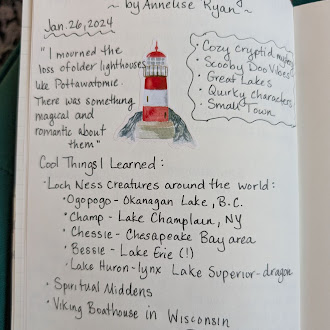 ~ by Annelise Ryan ~
Jan. 26, 2024
"I mourned the
loss of older lighthouses
like Pottawatomie.
There was something
magical and
romantic about
them"
• Cozy cryptid mystery
• Scooby Doo Vibes
• Great Lakes
• Quirky Characters
• Small Town
Cool Things I Learned:
• Loch Ness Creatures around the world:
• Ogopogo - Okanagan Lake, B.C.
• Champ - Lake Champlain, NY
• Chessie - Chesapeake Bay area
• Bessie - Lake Erie (!)
• Lake Huron - lynx Lake Superior - dragon
• Spiritual Middens
• Viking Boathouse in Wisconsin